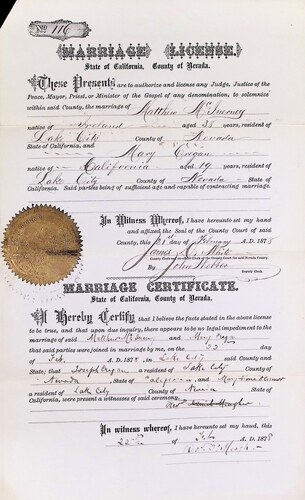 No. 116
MARRIAGE LICENSE.
State of California, County of Nevada.
These Presents are to authorize and license any Judge, Justice of the
Peace, Mayor, Priest, or Minister of the Gospel of any denomination, to solemnize
within said County, the marriage of Matthew McInerney
native of Ireland aged 38 years, resident of
Lake City County of Nevada
State of California, and Mary Cregan
native of California aged 19 years, resident of
Lake City County of Nevada State of
California. Said parties being of sufficient age and capable of contracting marriage.
In Witness Whereof, I have hereunto set my hand
and affixed the Seal of the County Court of said
County, this 21st day of February A. D. 1878
James D. White
By John Webber
Deputy Clerk.
MARRIAGE CERTIFICATE.
State of California, County of Nevada.
I Hereby Certify that I believe the facts stated in the above license
to be true, and that upon due inquiry, there appears to be no legal impediment to the
marriage of said Matthew McInerney and Mary Cregan
that said parties were joined in marriage by me, on the 22nd day
of Feb, A. D. 1878, in Lake City said County and
State; that Joseph Cregan a resident of Lake City County of
Nevada State of California and Mary Connor
a resident of Lake City County of Nevada State of
California, were present as witnesses of said ceremony.
Rev.
In witness whereof, I have hereunto set my hand, this
22nd day of Feb A. D. 1878